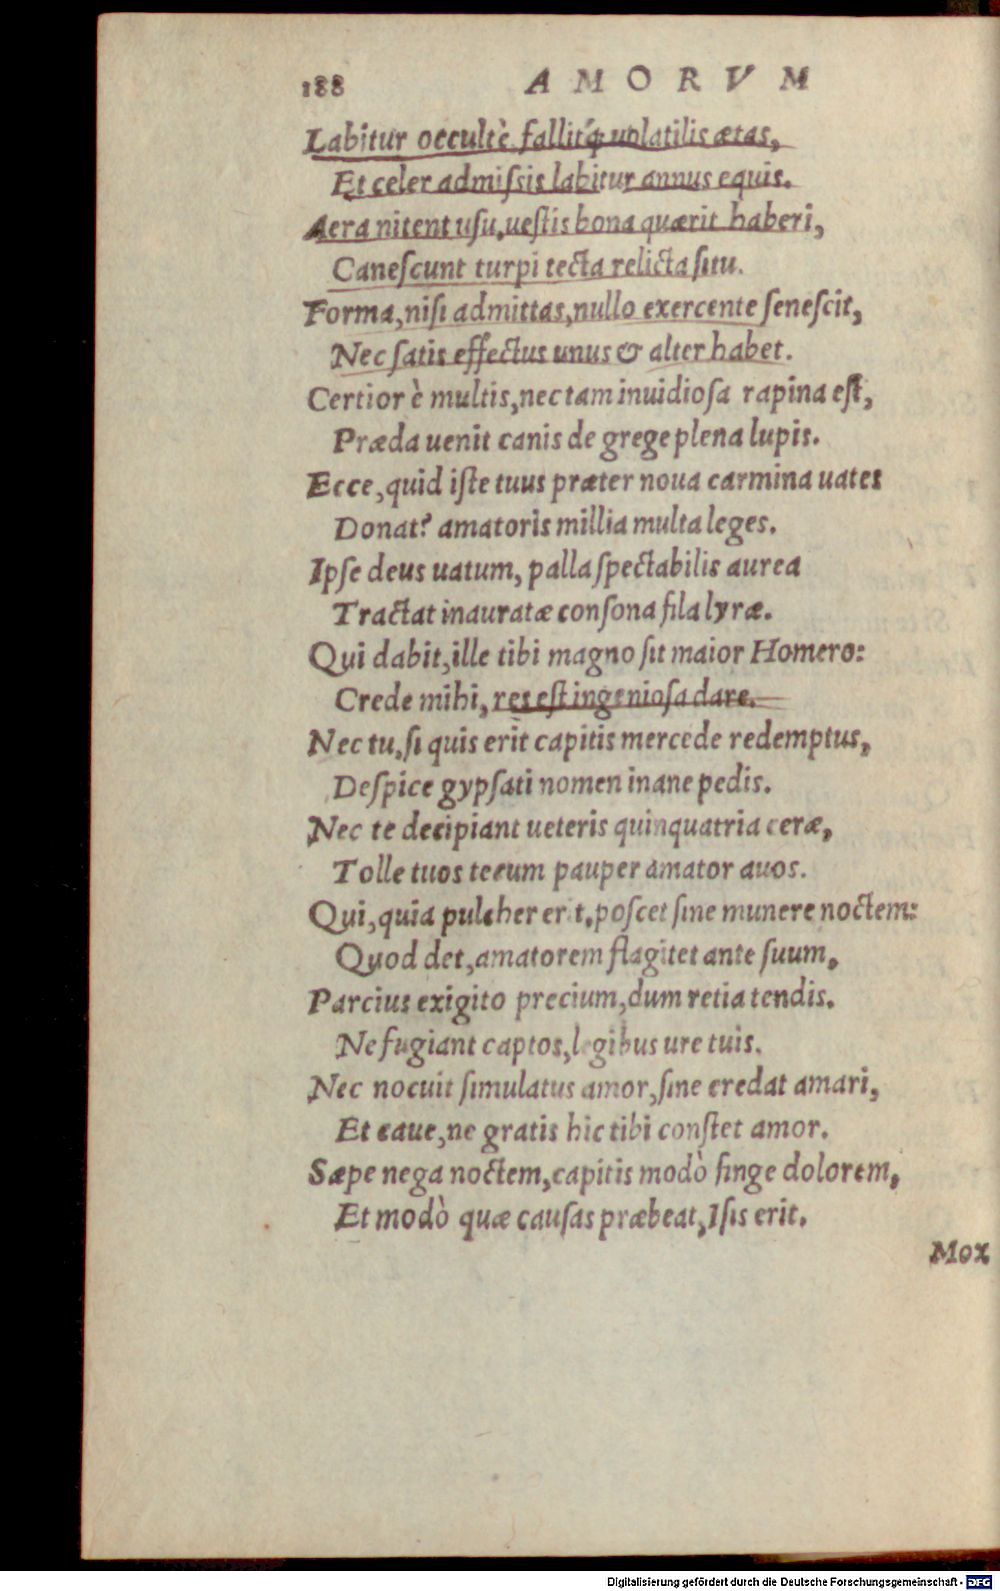 188 AMORVM
Labitur occultè fallitq́; uolatilis ætas,
Et celer admiſsis labitur annus equis.
Aera nitent uſu, ueſtis bona quærit haberi,
Caneſcunt turpi tecta relicta ſitu.
Forma, niſi admittas, nullo exercente ſeneſcit,
Nec ſatis effectus unus & alter habet.
Certior è multis, nec tam inuidioſa rapina eſt,
Præda uenit canis de grege plena lupis.
Ecce, quid iſte tuus præter noua carmina uates
Donat? amatoris millia multa leges.
Ipſe deus uatum, palla ſpectabilis aurea
Tractat inauratæ conſona fila lyræ.
Qui dabit, ille tibi magno ſit maior Homero:
Crede mihi, res eſt ingenioſa dare.
Nec tu, ſi quis erit capitis mercede redemptus,
Deſpice gypſati nomen inane pedis.
Nec te decipiant ueteris quinquatria ceræ,
Tolle tuos tecum pauper amator auos.
Qui, quia pulcher erit, poſcet ſine munere noctem:
Quod det, amatorem flagitet ante ſuum,
Parcius exigito precium, dum retia tendis.
Ne fugiant captos, legibus ure tuis.
Nec nocuit ſimulatus amor, ſine credat amari,
Et caue, ne gratis hic tibi conſtet amor.
Sæpe nega noctem, capitis modò finge dolorem,
Et modò quæ cauſas præbeat, Iſis erit.
Mox
Digitalisierung gefördert durch die Deutsche Forschungsgemeinschaft - DFG